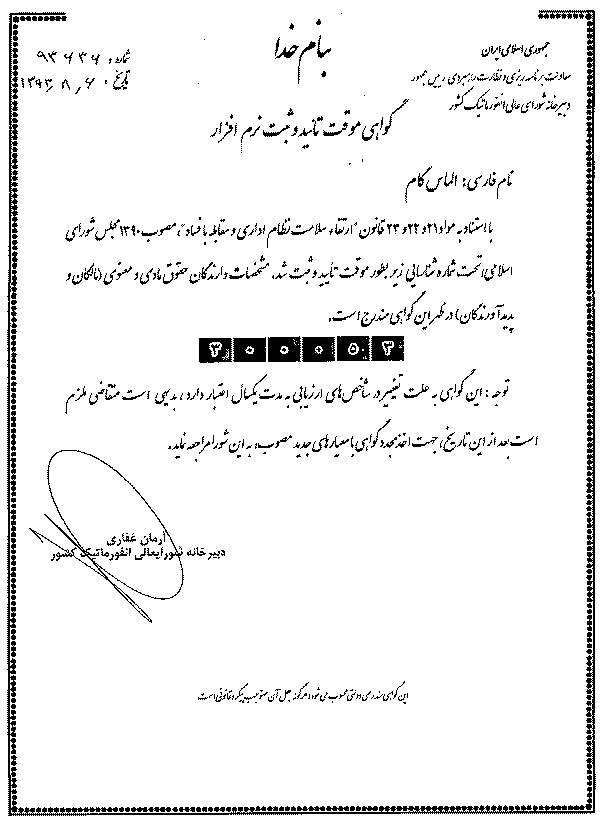 بنام خدا
جمهوری اسلامی ایران
معاونت برنامه ریزی و نظارت راهبردی رییس جمهور
دبیرخانه شورای عالی انفورماتیک کشور
شماره: ۹۳۶۳۶
تاریخ: ۱۳۹۳٫۸٫۶
گواهی موقت تائید و ثبت نرم افزار
نام فارسی: الماس کام
با استناد به مواد ۲۱ و ۲۲ و ۲۳ قانون "ارتقاء سلامت نظام اداری و مقابله با فساد"، مصوب ۱۳۹۰ مجلس شورای
اسلامی، تحت شماره شناسایی زیر بطور موقت تأیید و ثبت شد. مشخصات دارندگان حقوق مادی و معنوی (مالکان و
پدیدآورندگان) در ظهر این گواهی مندرج است.
۳۰۰۰۵۳
توجه: این گواهی به علت تغییر در شاخص های ارزیابی به مدت یکسال اعتبار دارد، بدیهی است متقاضی ملزم
است بعد از این تاریخ، جهت اخذ مجدد گواهی با معیارهای جدید مصوب، به این شورا مراجعه نماید.
آرمان غفاری
دبیرخانه شورایعالی انفورماتیک کشور
این گواهی سندرسمی دولتی محسوب می شود، هرگونه جعل آن مستوجب پیگرد قانونی است